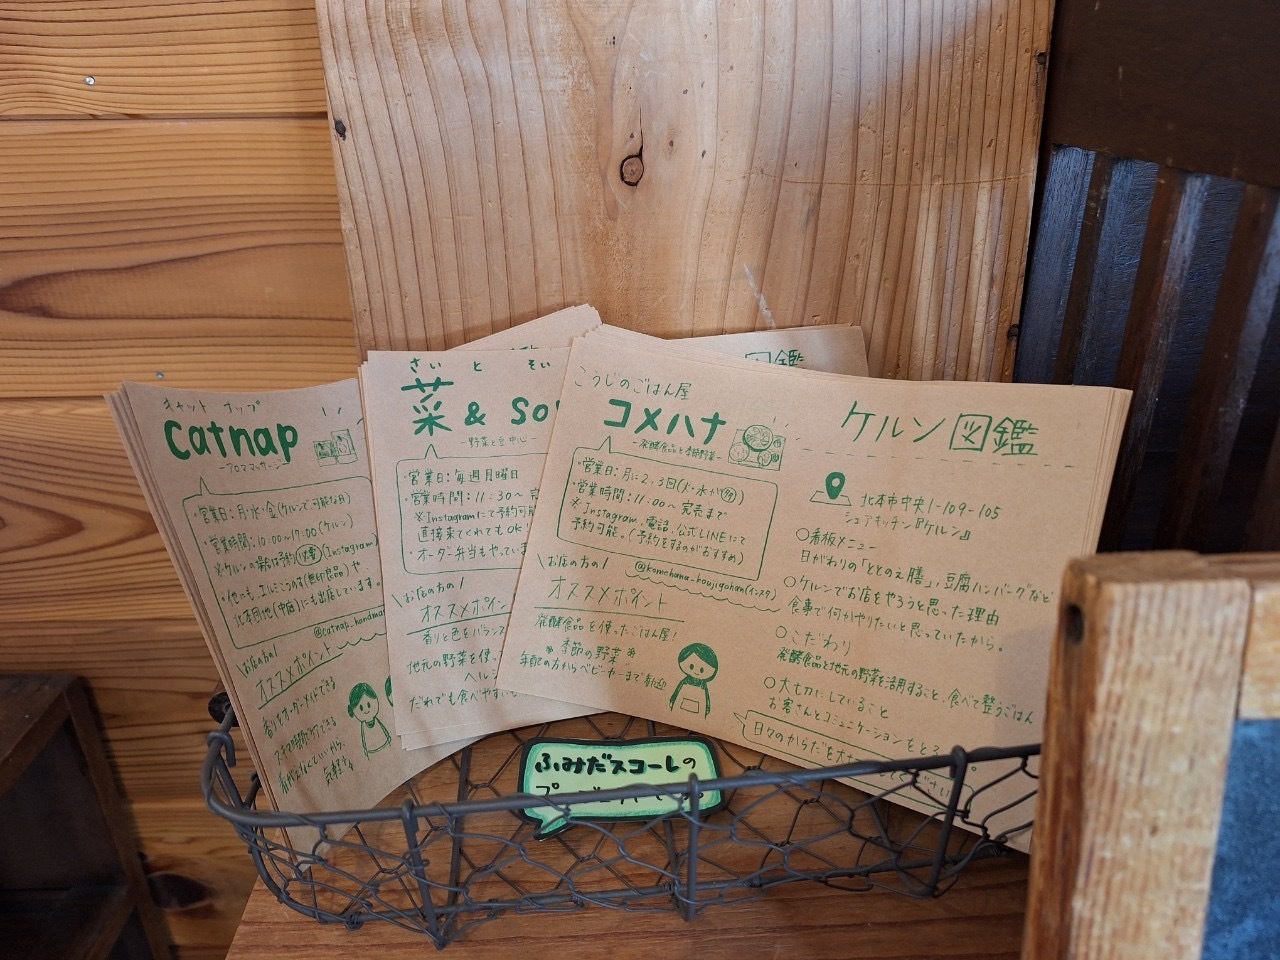 キャット ナップ
catnap
-アロママッサージ-
・営業日:月・水・金(ケルンで可能な日)
・営業時間:10:00~17:00(ケルン)
※ケルンの時は予約(必要)(Instagram)
北本団地(中庭)にも出店しています。
@catnap_handma
\お店の方の/
オススメポイント
香りをオーダーメイドできる
気軽さ
さい と そい
菜 & so
-野菜と豆中心-
・営業日:毎週月曜日
・営業時間:11:30~完
※Instagramにて予約可能
直接来てくれてもOK!
・オーダー弁当もやっていま
\お店の方の/
オススメポイン
香りと色をバランス
地元の野菜を使っ
ヘルシ
だれでも食べやすい
こうじのごはん屋
コメハナ
-発酵食品と季節野菜-
・営業日:月に2,3回(火・水が多い)
・営業時間:11:00~完売まで
※Instagram、電話、公式LINEにて
予約可能。(予約をするのがおすすめ)
@komehana_koujigohan(インスタ)
\お店の方の/
オススメポイント
発酵食品を使ったごはん屋!
*季節の野菜*
年配の方からベビーカーまで歓迎
図鑑
ケルン図鑑
北本市中央1-109-105
シェアキッチン『ケルン』
○看板メニュー
日がわりの「ととのえ膳」、豆腐ハンバーグなど
○ケルンでお店をやろうと思った理由
食事で何かやりたいと思っていたから。
○こだわり
発酵食品と地元の野菜を活用すること、食べて整うごはん
○大切にしていること
お客さんとコミュニケーションをとる
日々のからだを大
ください
ふみだスコーレの